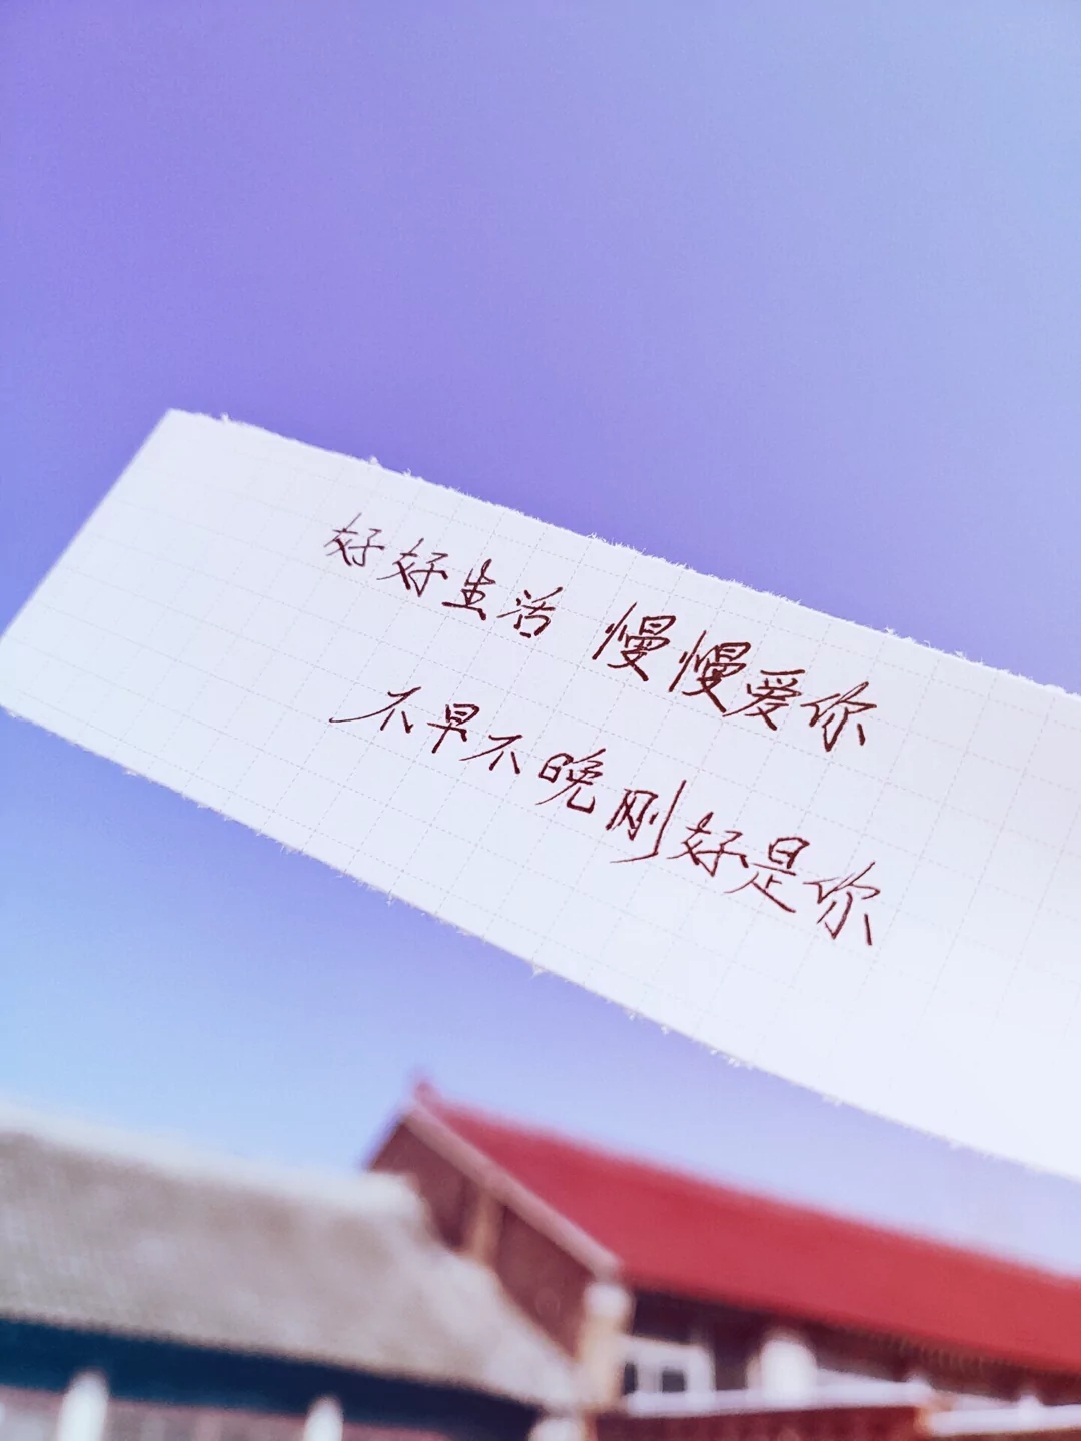 好好生活 慢慢爱你
不早不晚刚好是你